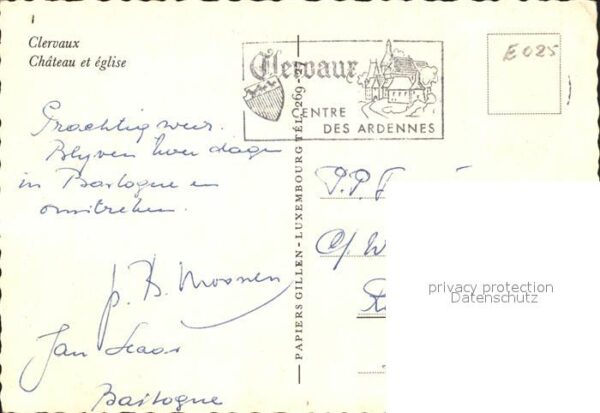 Clervaux
Château et église
E 025
Clervaux
CENTRE
DES ARDENNES
Prachtig weer.
Blyven hier dagen
in Bastogne en
omstreken.
Jan
Bastogne
PAPIERS GILLEN - LUXEMBOURG TÉL. 269-27
P.P.
privacy protection
Datenschutz